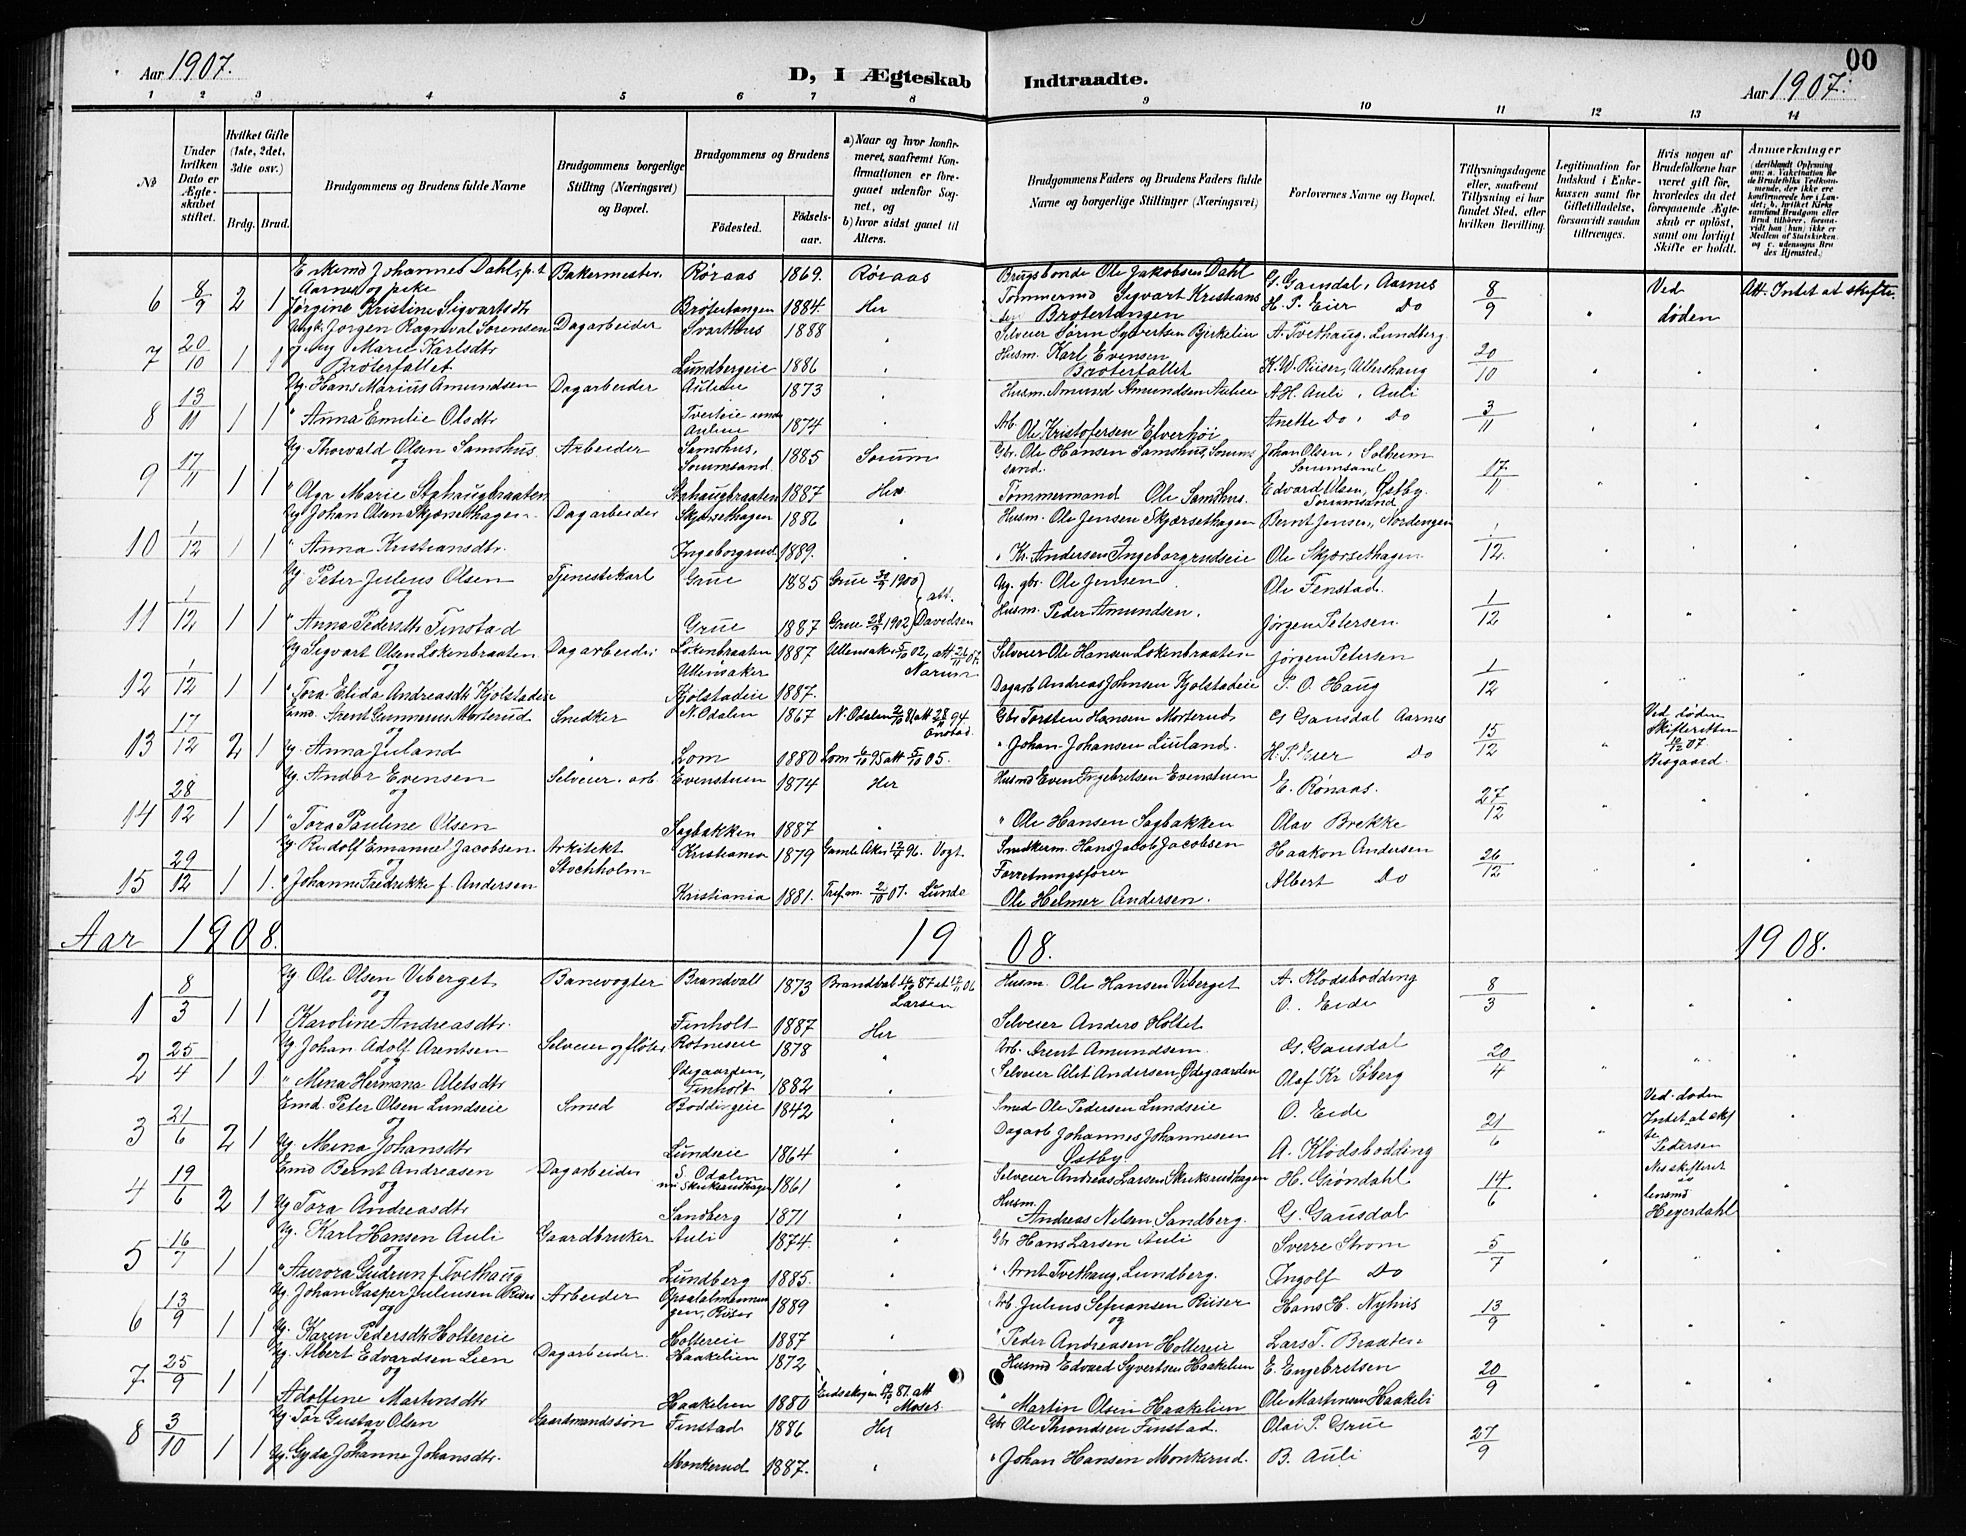 Aar 1907. D, I Ægteskab Indtraadte. Aar 1907. 00
1 2 3 4 5 6 7 8 9 10 11 12 13 14
No
Under hvilken Dato er Ægteskabet stiftet.
Hvilket Gifte (1ste, 2det, 3die osv.)
Brdg. Brud.
Brudgommens og Brudens fulde Navne
Brudgommens borgerlige Stilling (Næringsvei) og Bopæl.
Brudgommens og Brudens
Fødested. Fødselsaar.
a) Naar og hvor konfirmeret, saafremt Konfirmationen er foregaaet udenfor Sognet, og
b) hvor sidst gaaet til Alters.
Brudgommens Faders og Brudens Faders fulde Navne og borgerlige Stillinger (Næringsvei)
Forlovernes Navne og Bopæl.
Tillysningsdagene eller, saafremt Tillysning ei har fundet Sted, efter hvilken Bevilling.
Legitimation for Indskud i Enkekassen samt for Giftetilladelse, forsaavidt saadan tiltrænges.
Hvis nogen af Brudefolkene har været gift før, hvorledes da det foregaaende Ægteskab er opløst, samt om lovligt Skifte er holdt.
Anmærkninger
Enkemd Johannes Dahl, p.t. Bakermester Røraas 1869. Røraas Brugsbonde Ole Jakobsen Dahl G. Gausdal, Aarnes
6 8/9 2 1 Aarnes og pike Tømmermd Sigvart Kristians 8/9 Ved Att. Intet at skifte.
Jørgine Kristine Sigvartsdtr Brøtertangen 1884. Her Brøtertangen H. P. Eier Do døden
Ungk. Jørgen Ragnval Sørensen Dagarbeider Svarthus 1888 " Selveier Søren Syvertsen Bjerkelien A. Tvethaug, Lundberg
7 20/10 1 1 og Pig Marie Karlsdtr Husm. Karl Evensen 20/10 " " "
Brøterfallet Lundbergeie 1886 " Brøterfallet K. W. Ruser, Ullershaug
Ug. Hans Marius Amundsen Dagarbeider Aulieie 1873 " Husm. Amund Amundsen Aulieie A. H. Auli, Auli
8 13/11 1 1 " Anna Emilie Olsdtr Tverteie under Aulieie 1874 " Arb. Ole Kristofersen Elverhøi Anette Do, Do 3/11 " " "
Ug. Thorvald Olsen Samshus Arbeider Samshus, Sørumsand 1885 Sørum Gbr. Ole Hansen Samshus, Sørumsand. Johan Olsen, Solheim Sørumsand
9 17/11 1 1 og 17/11 " " "
" Olga Marie Stahaugbraaten Stahaugbraaten 1887 Her Tømmermand Ole Samshus. Edvard Olsen, Østby. Sørumsand
Ug. Johan Olsen Skjærsethagen Dagarbeider Skjærsethagen 1886 " Husm. Ole Jensen Skjærsethagen Bernt Jensen, Nordengen
10 1/12 1 1 " Anna Kristiansdtr. Ingeborgrud 1889. " " Kr. Andersen Ingeborgrudseie Ole Skjærsethagen 1/12. " " "
Ug. Peter Julius Olsen Tjenestekarl Grue 1885 Grue 1900 att. Ug. gbr. Ole Jensen Ole Fenstad.
og
11 1/12 1 1 " Anna Pedersdtr Finstad Grue 1887 Grue 1902 Davidsen Husm. Peder Amundsen. Jørgen Petersen 1/12 " " "
Ug. Sigvart Olsen Løkenbraaten Dagarbeider Løkenbraaten Ullensaker 1887 Ullensaker 5/10 02, att Narum Selveier Ole Hansen Løkenbraaten Jørgen Petersen
og
12 1/12 1 1 " Tora Elida Andreasdtr Kjølstadeie Kjølstadeie 1887. Dagarb Andreas Johnsen Kjølstadeie P. O. Haug 1/12 " " "
Emd. Arent Gunnerius Morterud Snedker N. Odalen 1867 N. Odalen 2/10 81, att 28/11 94 Onstad Gbr Torsten Hansen Morterud G. Gausdal Aarnes Ved døden
13 17/12 2 1 og 15/12 " Skifteretten 07
Ug. Anna Juland " Lom 1880 Lom 95 att 5/10 05. " Johan Johansen Liuland. H. P. Eier Do Bisgaard.
Ug. Andor Evensen Selveier, arb Evenstuen 1874 Her Husmd Even Ingebretsen Evenstuen E. Rønaas.
14 28/12 1 1 og 27/12 " " "
" Tora Pauline Olsen Sagbakken 1887 " " Ole Hansen Sagbakken Olav Brekke
Ug. Rudolf Emanuel Jacobsen Arkitekt Kristiania 1879 Gamle Aker 96. Vogt Snedkerm. Hans Jacob Jacobsen Haakon Andersen
15 29/12 1 1. og Stockholm Forretningsfører 26/12 " "
" Johanne Fredrekke f. Andersen Kristiania 1881. Tref.m. 2/10 07. Lunde Ole Helmer Andersen. Albert Do
Aar 1908. 19 08. 1908.
Ug Ole Olsen Viberget Banevogter Brandvall 1873 Brandval 87 Larsen Husm. Ole Hansen Viberget A. Klodsbodding
1 8/3 1 1 og 8/3 " " "
Karoline Andreasdtr. Finholt 1887 Her Selveier Anders Holtet O. Eide
Ug. Johan Adolf Arentsen Selveier og fløter Rotneseie 1878 Arb. Arent Amundsen G. Gausdal
2 25/4 1 1 og " 20/4 " " "
" Mina Hermana Aletsdtr Ødegaarden, Finholt 1882 Selveier Alet Andersen, Ødegaarden Olaf Kr Søberg
Emd. Peter Olsen Lundseie Smed Boddingeie 1842 " Smed Ole Pedersen Lundseie O. Eide Ved døden
3 21/6 2 1 og 21/6 " Intet at skifte "
Ug. Mina Johansdtr Lundseie 1864 " Dagarb Johannes Johannesen Østby A. Klodsbodding Pedersen
Emd Bernt Andreasen Dagarbeider S. Odalen nu Skriksrudhagen 1861 " Selveier Andreas Larsen Skriksrudhagen H. Grøndahl Nes skifteret
4 19/6 2 1 og 14/6 " lensmd "
Ug Tora Andreasdtr Sandberg 1871 " Husm. Andreas Nilsen Sandberg. G. Gausdal Heyerdahl
Ug. Karl Hansen Auli Gaardbruker Auli 1874. " Gbr Hans Larsen Auli Sverre Strøm
5 16/7 1 1 og 5/7 " " "
" Aurora Gudrun f. Tvethaug Lundberg 1885. " " Arnt Tvethaug, Lundberg. Ingolf Do
Ug. Johan Kasper Juliussen Arbeider 1889 " Arb. Julius Sefansen Ruser Hans H. Nyhus
6 13/9 1 1 og og 13/9 " " "
Ug. Karen Pedersdtr Holtereie Holtereie 1887 " " Peder Andreasen Holtereie Lars T. Braaten
Ug. Albert Edvardsen Lien Dagarbeider Haakelien 1872 " Husmd Edvard Syvertsen Haakelien E. Engebretsen
7 25/9 1 1 og 20/9 " " "
Adolfine Martinsdtr Haakelien 1880 Eidskogen att Moses " Martin Olsen Haakelien Ole Martinsen Haakeli
Ug. Tor Gustav Olsen Gaardmandssøn Finstad 1886 Her Gbr Ole Throndsen Finstad. Olai P. Grue
8 3/10 1 1 og 27/9
Ug. Gyda Johanne Johansdtr. Monkerud 1887. " " Johan Hansen Monkerud. B. Auli